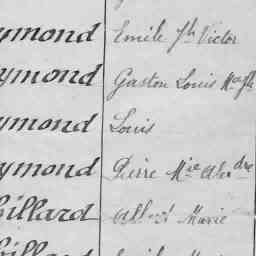 ymond Emile Jh Victor
ymond Gaston Louis
ymond Louis
ymond Pierre Mie Alexdre
billard Albert Marie